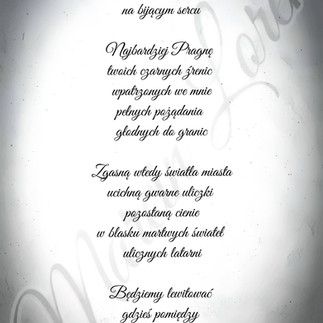 na bijącym sercu
Najbardziej Pragnę
twoich czarnych źrenic
wpatrzonych we mnie
pełnych pożądania
głodnych do granic
Zgasną wtedy światła miasta
ucichną gwarne uliczki
pozostaną cienie
w blasku martwych świateł
ulicznych latarni
Będziemy lewitować
gdzieś pomiędzy